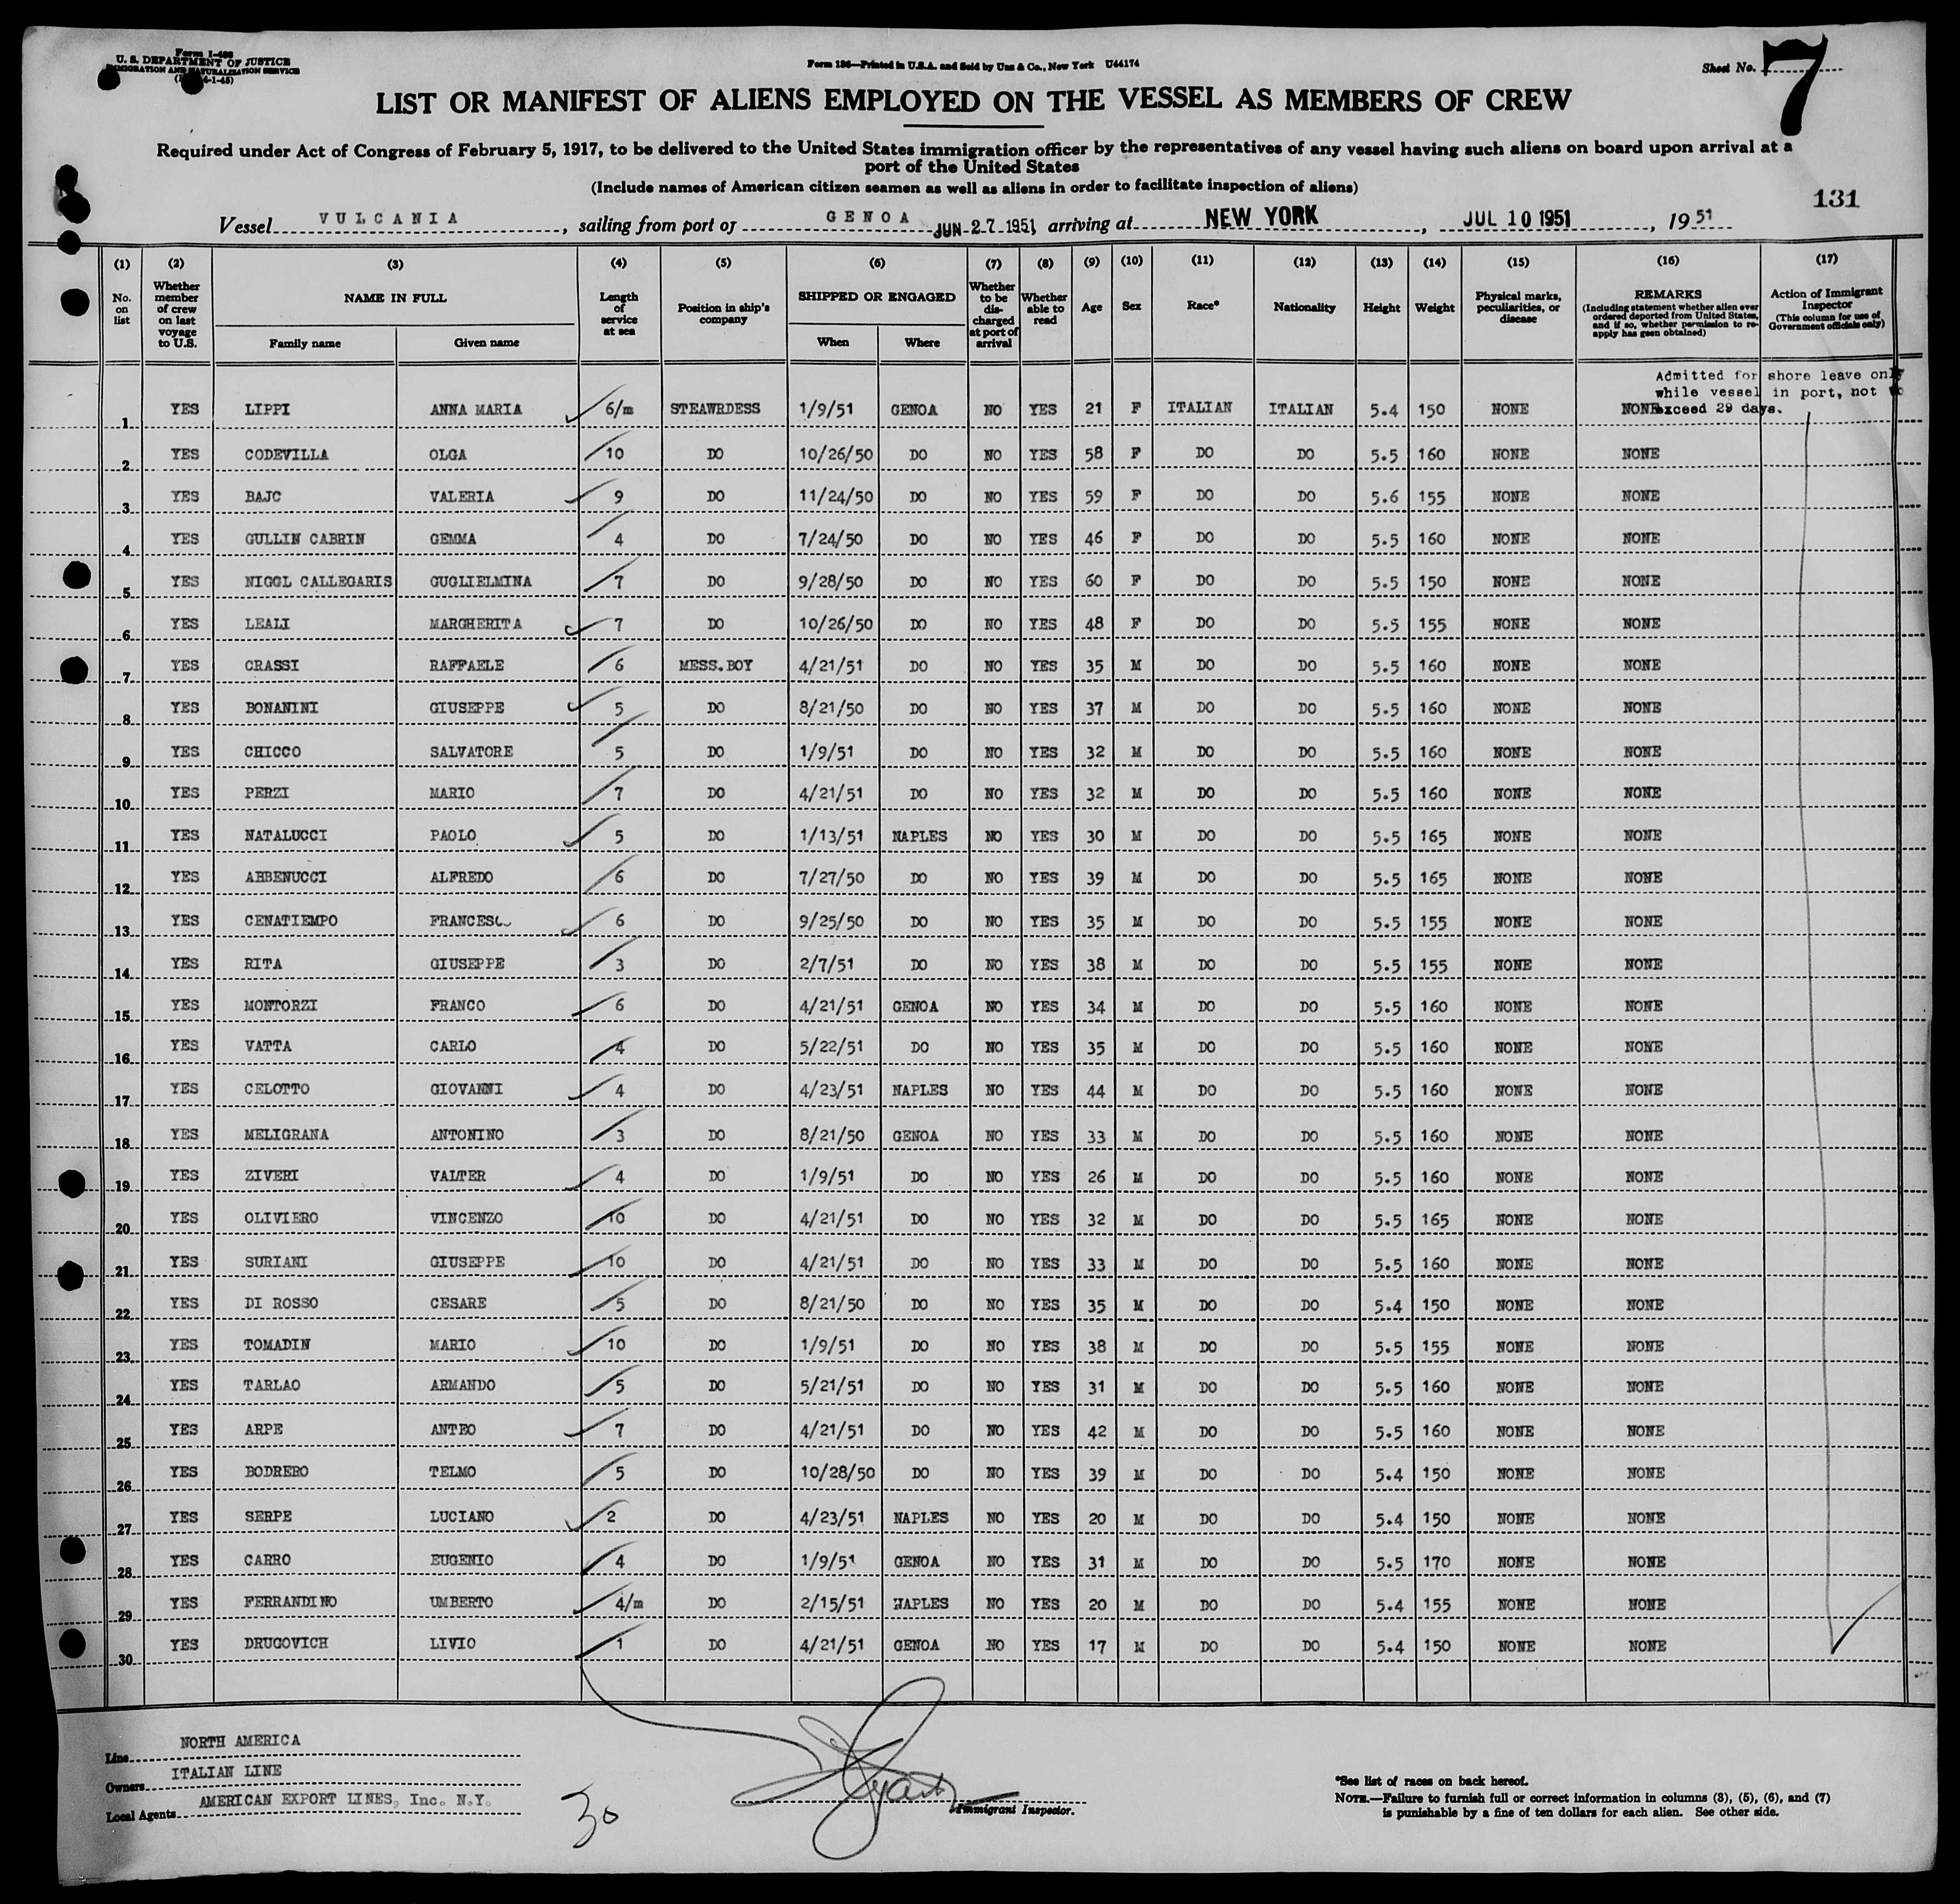 Form I-489
U. S. DEPARTMENT OF JUSTICE
IMMIGRATION AND NATURALIZATION SERVICE
4-1-45)
Form 136—Printed in U.S.A. and Sold by Unz & Co., New York U44174
Sheet No. 7
LIST OR MANIFEST OF ALIENS EMPLOYED ON THE VESSEL AS MEMBERS OF CREW
Required under Act of Congress of February 5, 1917, to be delivered to the United States immigration officer by the representatives of any vessel having such aliens on board upon arrival at a
port of the United States
(Include names of American citizen seamen as well as aliens in order to facilitate inspection of aliens)
131
Vessel VULCANIA, sailing from port of GENOA JUN 27 1951, arriving at NEW YORK, JUL 10 1951, 1951
(1) (2) (3) (4) (5) (6) (7) (8) (9) (10) (11) (12) (13) (14) (15) (16) (17)
No. on list
Whether member of crew on last voyage to U.S.
NAME IN FULL
Family name
Given name
Length of service at sea
Position in ship's company
SHIPPED OR ENGAGED
When
Where
Whether to be discharged at port of arrival
Whether able to read
Age
Sex
Race*
Nationality
Height
Weight
Physical marks, peculiarities, or disease
REMARKS
(Including statement whether alien ever ordered deported from United States, and if so, whether permission to re-apply has geen obtained)
Action of Immigrant Inspector
(This column for use of Government officials only)
Admitted for shore leave only
while vessel in port, not to
exceed 29 days.
1 YES LIPPI ANNA MARIA 6/m STEAWRDESS 1/9/51 GENOA NO YES 21 F ITALIAN ITALIAN 5.4 150 NONE NONE
2 YES CODEVILLA OLGA 10 DO 10/26/50 DO NO YES 58 F DO DO 5.5 160 NONE NONE
3 YES BAJC VALERIA 9 DO 11/24/50 DO NO YES 59 F DO DO 5.6 155 NONE NONE
4 YES GULLIN CABRIN GEMMA 4 DO 7/24/50 DO NO YES 46 F DO DO 5.5 160 NONE NONE
5 YES NIGGL CALLEGARIS GUGLIELMINA 7 DO 9/28/50 DO NO YES 60 F DO DO 5.5 150 NONE NONE
6 YES LEALI MARGHERITA 7 DO 10/26/50 DO NO YES 48 F DO DO 5.5 155 NONE NONE
7 YES CRASSI RAFFAELE 6 MESS.BOY 4/21/51 DO NO YES 35 M DO DO 5.5 160 NONE NONE
8 YES BONANINI GIUSEPPE 5 DO 8/21/50 DO NO YES 37 M DO DO 5.5 160 NONE NONE
9 YES CHICCO SALVATORE 5 DO 1/9/51 DO NO YES 32 M DO DO 5.5 160 NONE NONE
10 YES PERZI MARIO 7 DO 4/21/51 DO NO YES 32 M DO DO 5.5 160 NONE NONE
11 YES NATALUCCI PAOLO 5 DO 1/13/51 NAPLES NO YES 30 M DO DO 5.5 165 NONE NONE
12 YES ABBENUCCI ALFREDO 6 DO 7/27/50 DO NO YES 39 M DO DO 5.5 165 NONE NONE
13 YES CENATIEMPO FRANCESCO 6 DO 9/25/50 DO NO YES 35 M DO DO 5.5 155 NONE NONE
14 YES RITA GIUSEPPE 3 DO 2/7/51 DO NO YES 38 M DO DO 5.5 155 NONE NONE
15 YES MONTORZI FRANCO 6 DO 4/21/51 GENOA NO YES 34 M DO DO 5.5 160 NONE NONE
16 YES VATTA CARLO 4 DO 5/22/51 DO NO YES 35 M DO DO 5.5 160 NONE NONE
17 YES CELOTTO GIOVANNI 4 DO 4/23/51 NAPLES NO YES 44 M DO DO 5.5 160 NONE NONE
18 YES MELIGRANA ANTONINO 3 DO 8/21/50 GENOA NO YES 33 M DO DO 5.5 160 NONE NONE
19 YES ZIVERI VALTER 4 DO 1/9/51 DO NO YES 26 M DO DO 5.5 160 NONE NONE
20 YES OLIVIERO VINCENZO 10 DO 4/21/51 DO NO YES 32 M DO DO 5.5 165 NONE NONE
21 YES SURIANI GIUSEPPE 10 DO 4/21/51 DO NO YES 33 M DO DO 5.5 160 NONE NONE
22 YES DI ROSSO CESARE 5 DO 8/21/50 DO NO YES 35 M DO DO 5.4 150 NONE NONE
23 YES TOMADIN MARIO 10 DO 1/9/51 DO NO YES 38 M DO DO 5.5 155 NONE NONE
24 YES TARLAO ARMANDO 5 DO 5/21/51 DO NO YES 31 M DO DO 5.5 160 NONE NONE
25 YES ARPE ANTEO 7 DO 4/21/51 DO NO YES 42 M DO DO 5.5 160 NONE NONE
26 YES BODRERO TELMO 5 DO 10/28/50 DO NO YES 39 M DO DO 5.4 150 NONE NONE
27 YES SERPE LUCIANO 2 DO 4/23/51 NAPLES NO YES 20 M DO DO 5.4 150 NONE NONE
28 YES CARRO EUGENIO 4 DO 1/9/51 GENOA NO YES 31 M DO DO 5.5 170 NONE NONE
29 YES FERRANDINO UMBERTO 4/m DO 2/15/51 NAPLES NO YES 20 M DO DO 5.4 155 NONE NONE
30 YES DRUGOVICH LIVIO 1 DO 4/21/51 GENOA NO YES 17 M DO DO 5.4 150 NONE NONE
Line NORTH AMERICA
Owners ITALIAN LINE
Local Agents AMERICAN EXPORT LINES, Inc. N.Y.
30
Immigrant Inspector.
*See list of races on back hereof.
NOTE.—Failure to furnish full or correct information in columns (3), (5), (6), and (7)
is punishable by a fine of ten dollars for each alien. See other side.